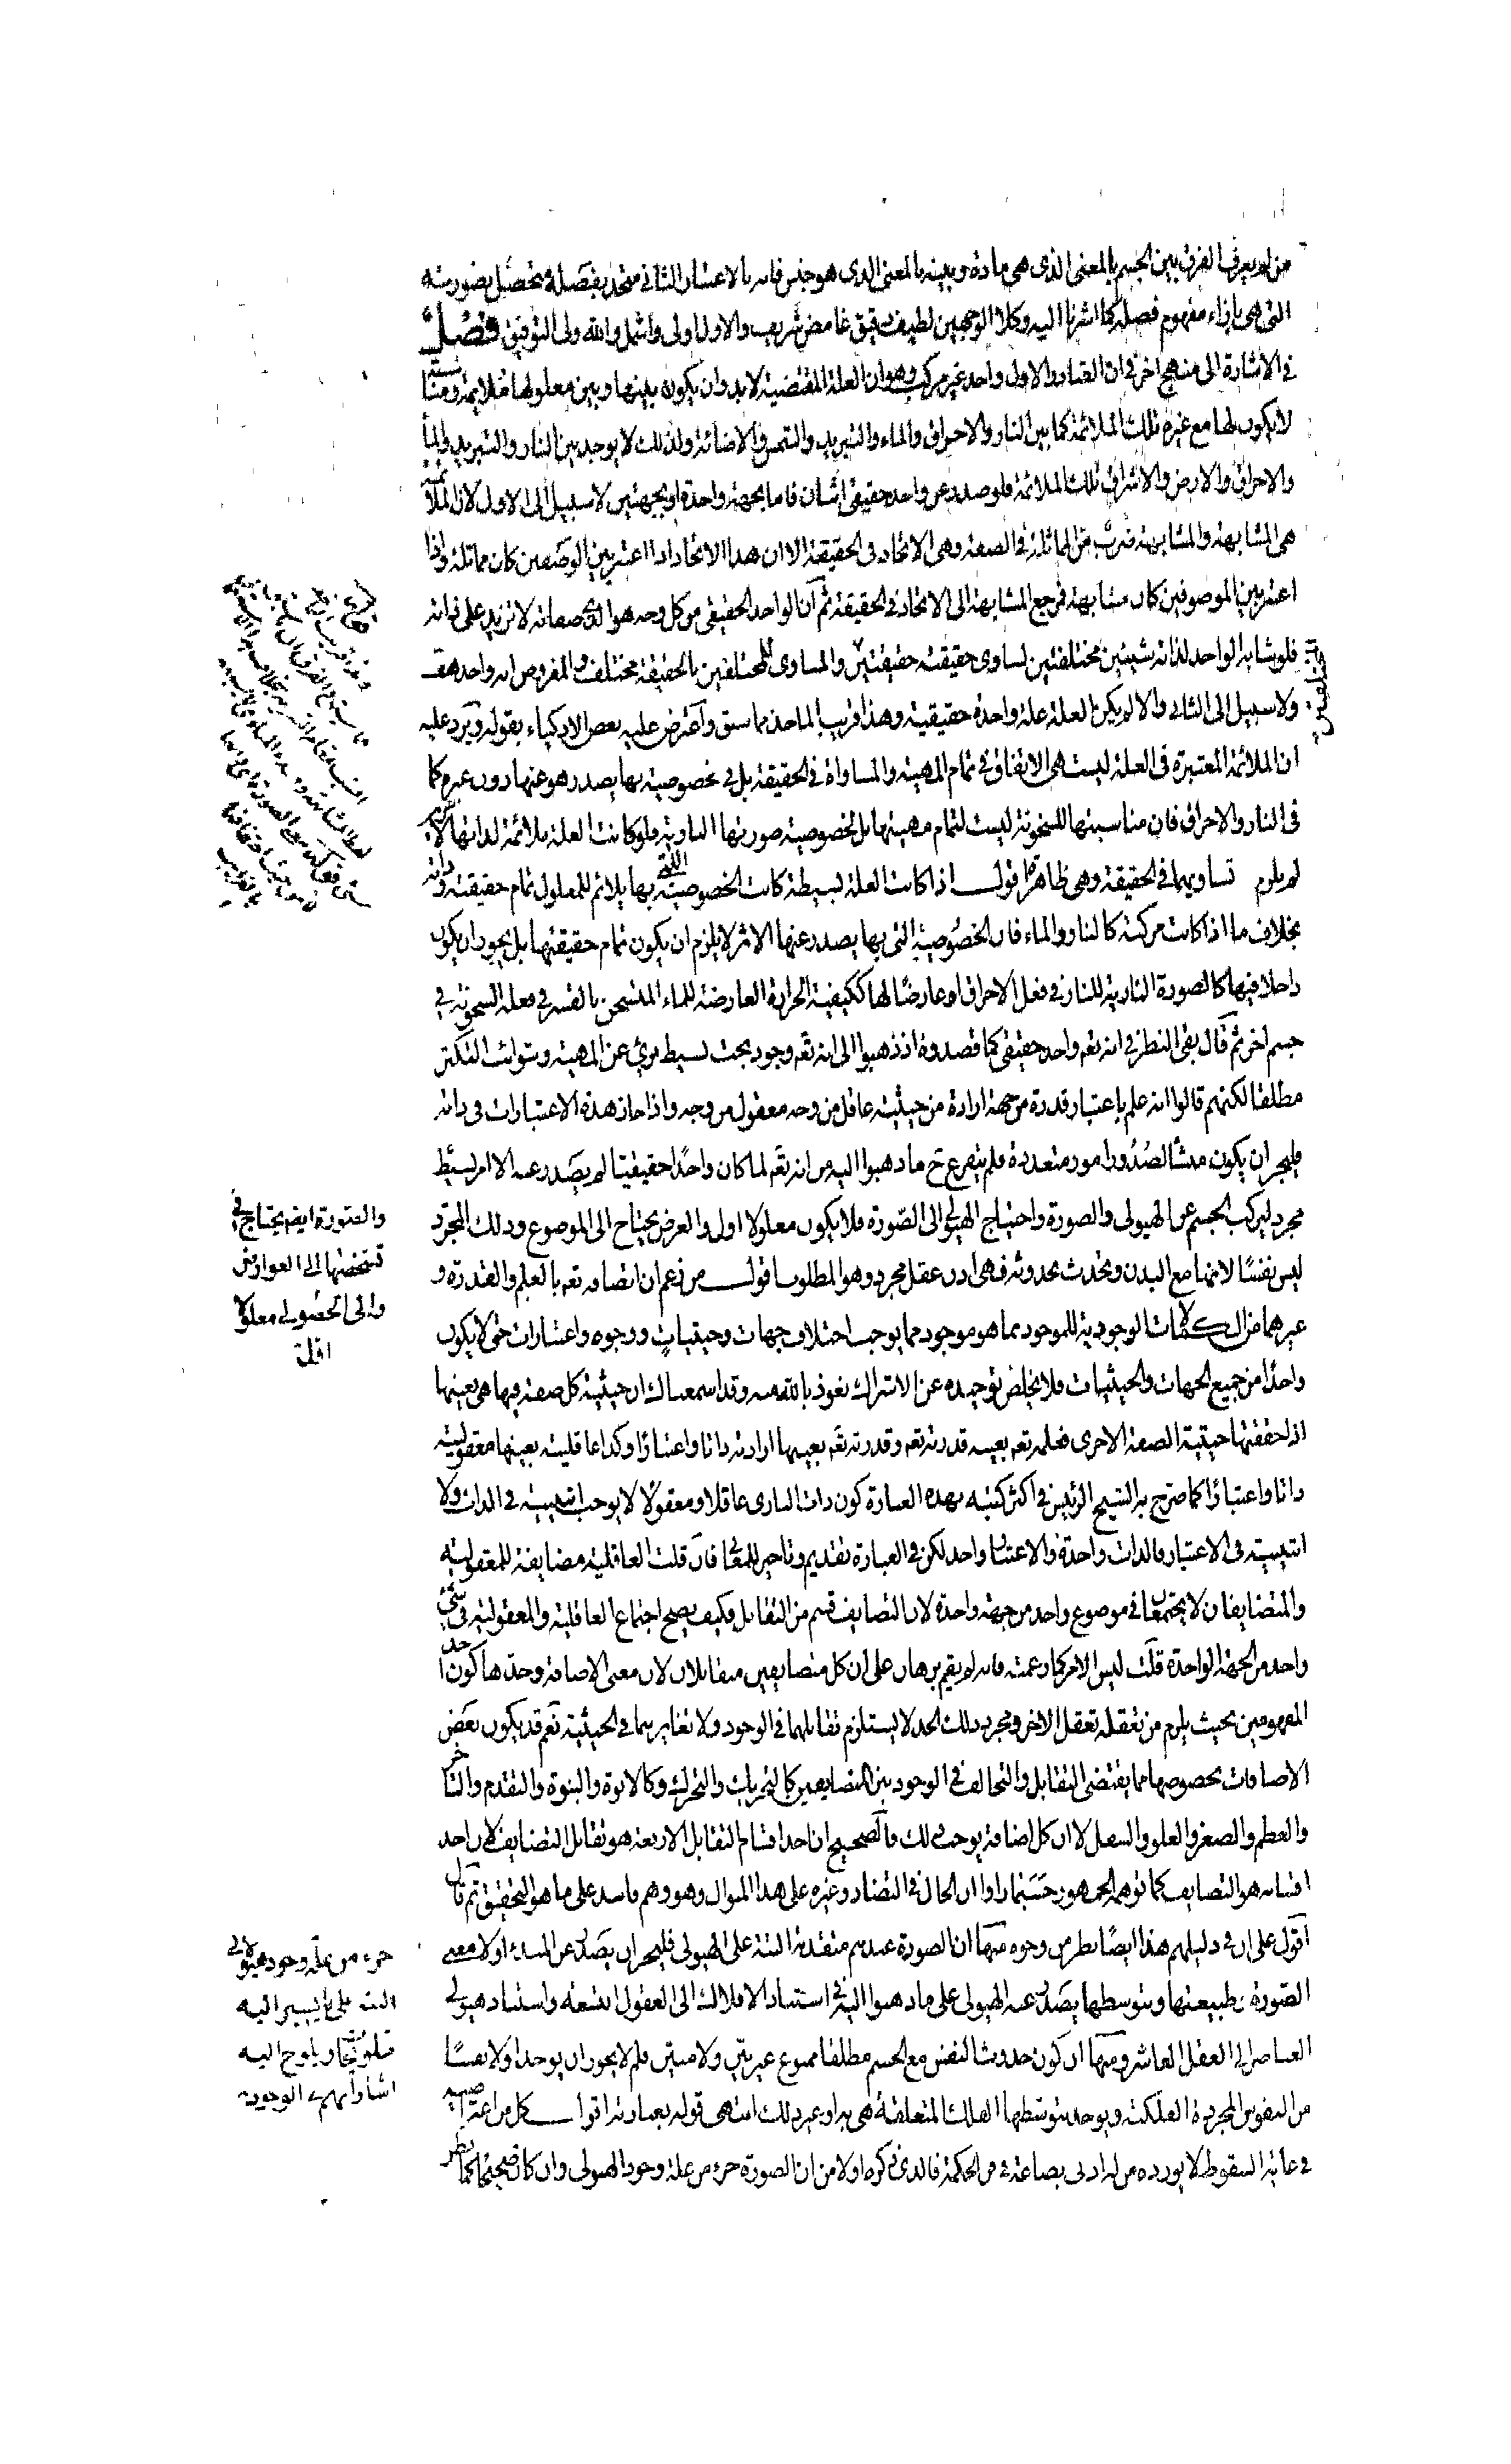 من لم يعرف الفرق بين الجسم بالمعنى الذى هى مادة وبينه بالمعنى الذى هو جنس فانه بالاعتبار الثانى متحد بفصله متحصل بصورته
التى هى بازاء مفهوم فصله كما اشرنا اليه وكلا الوجهين لطيف دقيق غامض شريف والاول اولى واشمل والله ولى التوفيق فصل
فى الاشارة الى منهج اخر فى ان الصادر الاول واحد غير مركب وهو ان العلة المقتضية لابد وان يكون بينها وبين معلولها ملائمة ومناسبة
لا يكون لها مع غيره تلك الملائمة كما بين النار والاحراق والماء والتبريد والشمس والاضائة ولذلك لا يوجد بين النار والتبريد والماء
والاحراق والارض والاشراق تلك الملائمة فلو صدر عن واحد حقيقى اثنان فاما بجهة واحدة او بجهتين لا سبيل الى الاول لان الملائمة
هى المشابهة والمشابهة ضرب من المماثلة فى الصفة وهى الاتحاد فى الحقيقة الا ان هذا الاتحاد اذا اعتبر بين الوصفين كان مماثلة واذا
اعتبر بين الموصوفين كان مشابهة فمرجع المشابهة الى الاتحاد فى الحقيقة ثم ان الواحد الحقيقى من كل وجه هو الذى صفاته لا تزيد على ذاته
فلو شابه الواحد لذاته شيئين مختلفتين لساوى حقيقته حقيقتين والمساوى للمختلفين بالحقيقة مختلف والمفروض انه واحد هف
ولا سبيل الى الثانى والا لم يكن العلة علة واحدة حقيقية وهذا قريب الماخذ مما سبق واعترض عليه بعض الاذكياء بقوله ويرد عليه
ان الملائمة المعتبرة فى العلة ليست هى الاتفاق فى تمام المهية والمساواة فى الحقيقة بل فى خصوصية بها يصدر هو عنها دون غيره كما
فى النار والاحراق فان مناسبتها للسخونة ليست لتمام مهيتها بل لخصوصية صورتها النارية فلو كانت العلة ملائمة لذاتها لامرين
لم يلزم تساويهما فى الحقيقة وهى ظاهرة اقول اذا كانت العلة بسيطة كانت الخصوصية التى بها يلائم للمعلول تمام حقيقته وذاته
بخلاف ما اذا كانت مركبة كالنار والماء فان الخصوصية التى بها يصدر عنها الاثر لا يلزم ان يكون تمام حقيقتها بل يجوز ان يكون
داخلا فيها كالصورة النارية للنار فى فعل الاحراق او عارضا لها ككيفية الحرارة العارضة للماء المتسخن بالقسر فى فعله السخونة فى
جسم اخر ثم قال بقى النظر فى انه تعه واحد حقيقى كما قصدوه اذ ذهبوا الى انه تعه وجود بحت بسيط برئ عن المهية وشوائب التكثر
مطلقا لكنهم قالوا انه علم باعتبار قدرة من جهة ارادة من حيثية عاقل من وجه معقول من وجه واذا جاز هذه الاعتبارات فى ذاته
فليجز ان يكون منشأ لصدور امور متعددة فلم يتفرع ح ما ذهبوا اليه من انه تعه لما كان واحدا حقيقيا لم يصدر عنه الا امر بسيط
مجرد لتركب الجسم عن الهيولى والصورة واحتياج الهيولى الى الصورة فلا يكون معلولا اول والعرض يحتاج الى الموضوع وذلك المجرد
ليس نفسا لانها مع البدن وتحدث بحدوثه فهى اذن عقل مجرد وهو المطلوب اقول من زعم ان اتصافه تعه بالعلم والقدرة و
غيرهما من الكمالات الوجودية للموجود مما هو موجود مما يوجب اختلاف جهات وحيثيات ووجوه واعتبارات حتى لا يكون
واحدا من جميع الجهات والحيثيات فلا يخلص توحيده عن الاشراك نعوذ بالله منه وقد اسمعناك ان حيثية كل صفة فيها هى بعينها
اذا حققتها حيثية الصفة الاخرى فعلمه تعه بعينه قدرته تعه وقدرته تعه بعينها ارادته ذاتا واعتبارا وكذا عاقليته بعينها معقوليته
ذاتا واعتبارا كما صرح به الشيخ الرئيس فى اكثر كتبه بهذه العبارة كون ذات البارى عاقلا ومعقولا لا يوجب اثنينية فى الذات ولا
اثنينية فى الاعتبار فالذات واحدة والاعتبار واحد لكن فى العبارة تقديم وتاخير للمعانى فان قلت العاقلية مضايفة للمعقولية
والمتضايفان لا يجتمعان فى موضوع واحد من جهة واحدة لان التضايف قسم من التقابل فكيف يصح اجتماع العاقلية والمعقولية فى شئ
واحد من الجهة الواحدة قلت ليس الامر كما زعمته فانه لم يقم برهان على ان كل متضايفين متقابلان لان معنى الاضافة وحدها كون احد
المفهومين بحيث يلزم من تعقله تعقل الاخر ومجرد ذلك الحد لا يستلزم تقابلهما فى الوجود ولا تغايرهما فى الحيثية نعم قد يكون بعض
الاضافات بخصوصها مما يقتضى التقابل والتخالف فى الوجود بين المتضايفين كالتحريك والتحرك وكالابوة والبنوة والتقدم والتاخر
والعظم والصغر والعلو والسفل لا ان كل اضافة يوجب ذلك فالصحيح ان احد اقسام التقابل الاربعة هو تقابل التضايف لا ان احد
اقسامه هو التضايف كما توهمه الجمهور حسبما راوا ان الحال فى التضاد وغيره على هذا المنوال وهو وهم فاسد على ما هو التحقيق ثم قال
اقول على ان فى دليلهم هذا ايضا نظر من وجوه منها ان الصورة عندهم متقدمة البتة على الهيولى فليجز ان يصدر عن المبدء اولا معه
الصورة بطبيعتها وبتوسطها يصدر عنه الهيولى على ما ذهبوا اليه فى استناد الافلاك الى العقول التسعة واستناد هيولى
العناصر الى العقل العاشر ومنها ان كون حدوث النفس مع الجسم مطلقا ممنوع غير بين ولا مبين فلم لا يجوز ان يوجد اولا نفسا
من النفوس المجردة الفلكية ويوجد بتوسطها الفلك المتعلقة هى به او غير ذلك انتهى قوله بعبارته اقول كل من اعتراضيه
فى غاية السقوط لا يورده من له ادنى بضاعة فى فن الحكمة فالذى ذكره اولا من ان الصورة جزء من علة وجود الهيولى وان كان صحيحا
والصورة ايضا يحتاج فى
تشخصها الى العوارض
والى الهيولى معلولا
جزء من علة وجود هيولى
البتة على ما يشير اليه
تلويحا ويلوح اليه